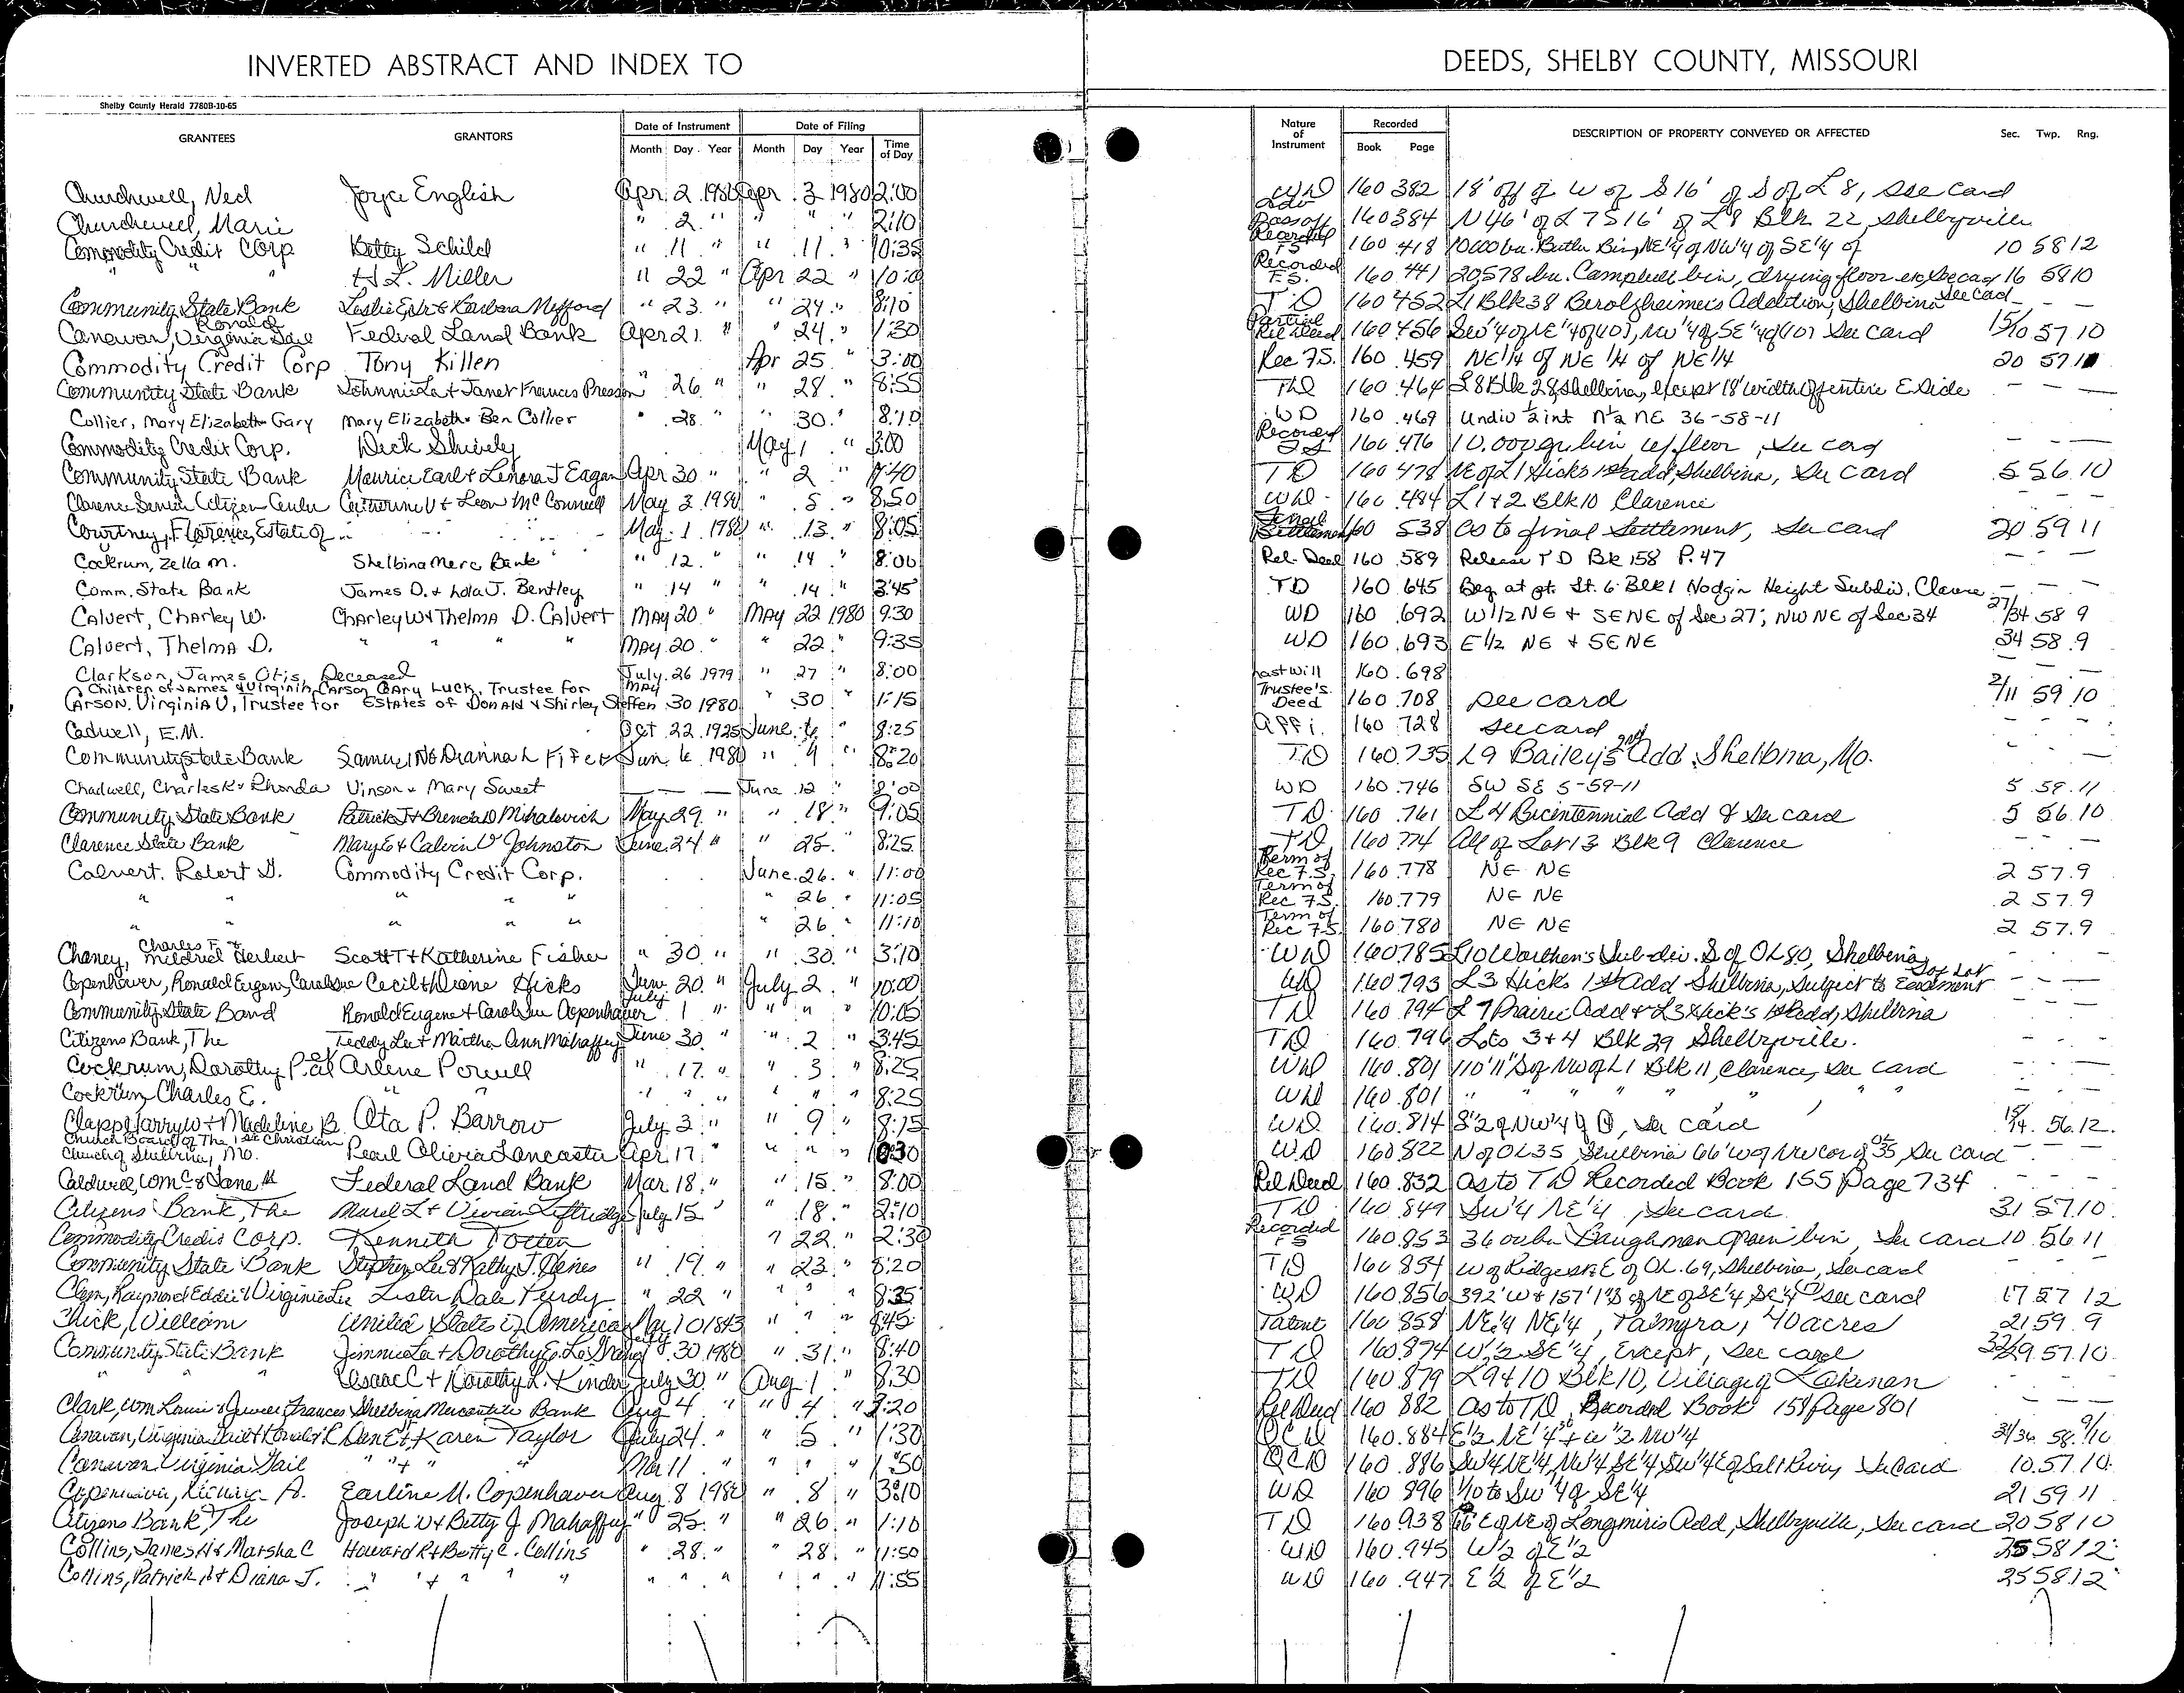 INVERTED ABSTRACT AND INDEX TO DEEDS, SHELBY COUNTY, MISSOURI
Shelby County Herald 7780B-10-65
GRANTEES GRANTORS Date of Instrument Date of Filing Nature of Instrument Recorded DESCRIPTION OF PROPERTY CONVEYED OR AFFECTED Sec. Twp. Rng.
Month Day Year Month Day Year Time of Day Book Page
Churchwell, Ned Joyce English Apr. 2 1980 Apr. 3 1980 2:00 WD 160 382 18' off of W of S 16' of S of L 8, see card
Churchwell, Marie " 2 " " " " 2:10 160 384 N 46' of L 7 S 16' of L 8 Blk 22, Shelbyville
Commodity Credit Corp Betty Schild " 11 " " 11 " 10:35 Recorded FS 160 418 10000 bu. Butler Bin, NE 1/4 of NW 1/4 of SE 1/4 of 10 58 12
" " " H L. Miller " 22 " Apr 22 " Recorded F.S. 160 441 20,578 bu. Campbell bin, drying floor etc, See card 16 58 10
Community State Bank Leslie & Barbara Mefford " 23 " " 24 " 8:10 TD 160 452 L1 Blk 38 Berolzheimer's Addition, Shelbina See card — —
Canavan, Virginia Gail Ronald Federal Land Bank Apr 21 " " 24 " 1:30 Partial Rel Deed 160 456 SW 1/4 of NE 1/4 of 10, NW 1/4 of SE 1/4 of 10 See card 15/10 57 10
Commodity Credit Corp Tony Killen Apr 25 " 3:00 Rec F.S. 160 459 NE 1/4 of NE 1/4 of NE 1/4 20 57 11
Community State Bank Johnnie Lee & Janet Frances Presson " 26 " " 28 " 8:55 TD 160 464 L 8 Blk 28 Shelbina, except 18' width off entire E side — — —
Collier, Mary Elizabeth & Gary Mary Elizabeth & Ben Collier " 28 " " 30 " 8:10 WD 160 469 Undiv 1/2 int N 1/2 NE 36-58-11
Commodity Credit Corp. Dick Shively May 1 " 3:00 Recorded FS 160 476 10,000 gr. bin w/floor, See card — — —
Community State Bank Maurice Earl & Lenora J Eagan Apr 30 " " 2 " 160 478 NE of L1 Hicks 1st add, Shelbina, See card 5 56 10
Clarence Senior Citizen Center Catherine V & Leon McConnell May 3 1980 " 5 " 8:50 WD 160 484 L 1 + 2 Blk 10 Clarence - - -
Courtney, Florence, Estate of May 1 1980 " 13 " 8:05 Final Settlement 160 538 As to final settlement, See card 20 59 11
Cockrum, Zella M. Shelbina Merc Bank " 12 " " 14 " 8:00 Rel. Deed 160 589 Release TD Bk 158 P. 47 - - -
Comm. State Bank James D. & Lola J. Bentley " 14 " " 14 " 3:45 TD 160 645 Beg at pt. St. 6 Blk 1 Hodgin Height Subdiv. Clarence - - -
Calvert, Charley W. Charley W & Thelma D. Calvert May 20 " May 22 1980 9:30 WD 160 692 W 1/2 NE + SENE of Sec 27; NW NE of Sec 34 27/34 58 9
Calvert, Thelma D. " " " " May 20 " " 22 " 9:35 WD 160 693 E 1/2 NE + SENE 34 58 9
Clarkson, James Otis, Deceased July 26 1979 " 27 " 8:00 Last Will 160 698 - - -
Children of James & Virginia Carson Gary Luck, Trustee for
Carson, Virginia V, Trustee for Estates of Donald & Shirley Steffen May 30 1980 " 30 " 1:15 Trustee's Deed 160 708 See card 2/11 59 10
Cadwell, E.M. Oct 22 1925 June 6 " 8:25 Affi. 160 728 See card - - -
Community State Bank Samuel N & Deanna L Fifer Jun 6 1980 " 9 " 8:20 TD 160 735 L9 Bailey's 2nd add. Shelbina, Mo. - - -
Chadwell, Charles K & Rhonda Vinson & Mary Sweet — — — June 12 " WD 160 746 SW SE 5-59-11 5 59 11
Community State Bank Patrick J & Brenda D Mihalovich May 29 " " 18 " 9:05 TD 160 761 L 4 Bicentennial Add & See card 5 56 10
Clarence State Bank Mary E & Calvin V Johnston June 24 " " 25 " 8:25 TD 160 774 All of Lot 13 Blk 9 Clarence - - -
Calvert, Robert D. Commodity Credit Corp. June 26 " 11:00 Term of Rec F.S. 160 778 NE NE 2 57 9
" " " " " " 26 " 11:05 Term of Rec F.S. 160 779 NE NE 2 57 9
" " " " " " 26 " 11:10 Term of Rec F.S. 160 780 NE NE 2 57 9
Chaney, Charles F. & Mildred Herbert Scott T & Katherine Fisher " 30 " " 30 " 3:10 WD 160 785 L10 Worthen's Sub-div. S of OL 80, Shelbina - - -
Copenhaver, Ronald Eugene, Carol Sue Cecil & Diane Hicks Jun 20 " July 2 " 10:00 WD 160 793 L3 Hicks 1st Add Shelbina, Subject to Easement - - -
Community State Band Ronald Eugene & Carol Sue Copenhaver July 1 " " " " 10:05 TD 160 794 L 7 Prairie Add & L3 Hick's 1st Add, Shelbina - - -
Citizens Bank, The Teddy Lee & Martha Ann Mahaffey June 30 " " 2 " 3:45 TD 160 796 Lots 3 + 4 Blk 29 Shelbyville. - - -
Cockrum, Dorothy P. et al Arlene Powell " 17 " " 3 " 8:25 WD 160 801 110'11" S of NW of L1 Blk 11, Clarence, See card - - -
Cockrum, Charles E. " " " " " " " " 8:25 WD 160 801 " " " " - - -
Clapp, Harry W & Madeline B. Ota P. Barrow July 3 " " 9 " 8:15 WD 160 814 S 1/2 of NW 1/4 of, See card 56 12
Church Board of The 1st Christian
Church of Shelbina, Mo. Pearl Olivia Lancaster Apr 17 " " " " 10:30 WD 160 822 N of OL 35 Shelbina 66' W of NW cor of OL 35, See card
Caldwell, Wm C & Jane M Federal Land Bank Mar 18 " " 15 " 8:00 Rel Deed 160 832 As to TD Recorded Book 155 Page 734 - - -
Citizens Bank, The Murel L & Vivian Leftridge July 15 " 18 " 2:10 TD 160 849 SW 1/4 NE 1/4, See card 31 57 10
Commodity Credit Corp. Kenneth Totten " 22 " 2:30 Recorded FS 160 853 Baughman Grain bin, See card 10 56 11
Community State Bank Stephen Lee & Kathy J. Hines " 19 " " 23 " 8:20 TD 160 854 W of Ridge St. E of OL 69, Shelbina, See card
Clem, Raymond Eddie & Virginia Lee Lester Dale Purdy " 22 " " " " 8:35 WD 160 856 392' W + 157' 1" S of NE of SE 1/4, SE 1/4 See card 17 57 12
William United States of America May 10 1843 " " " 8:45 Patent 160 858 NE 1/4 NE 1/4, Palmyra, 40 acres 21 59 9
Community State Bank Jimmie Lee & Dorothy E. July 30 1980 " 31 " 8:40 TD 160 874 W 1/2 SE 1/4, Except, See card 32/29 57 10
" " " Isaac C & Dorothy L. Kinder July 30 " Aug 1 " 8:30 TD 160 879 L 9 + 10 Blk 10, Village of Lakenan - - -
Clark, Wm Louis & Jewell Frances Shelbina Mercantile Bank Aug 4 " " 4 " Rel Deed 160 882 As to TD, Recorded Book 158 Page 801 — — —
Canavan, Virginia Gail & Ronald R Dane & Karen Taylor July 24 " " 5 " 1:30 QCD 160 884 E 1/2 NE 1/4 + W 1/2 NW 1/4 31/36 58 9/10
Canavan, Virginia Gail " + " " Mar 11 " " " " 1:50 QCD 160 886 SW 1/4 NE 1/4, NW 1/4 SE 1/4, SW 1/4 E of Salt River, See Card 10 57 10
Copenhaver, Richard A. Earline M. Copenhaver Aug 8 1980 " 8 " 3:10 WD 160 896 1/10 to SW 1/4 of SE 1/4 21 59 11
Citizens Bank, The Joseph W & Betty J. Mahaffey " 25 " " 26 " 1:10 TD 160 938 E of NE of Longmires Add, Shelbyville, See card 20 58 10
Collins, James H & Marsha C Howard R & Betty C. Collins " 28 " " 28 " 11:50 WD 160 945 W 1/2 of E 1/2 25 58 12
Collins, Patrick H & Diana J. " " + " " " " " " " " " 11:55 WD 160 947 E 1/2 of E 1/2 25 58 12